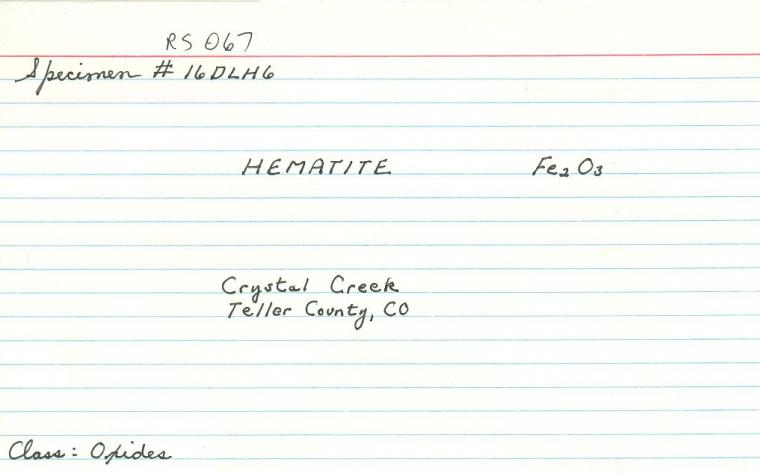 RS 067
Specimen # 16DLH6
HEMATITE Fe₂O₃
Crystal Creek
Teller County, CO
Class: Oxides